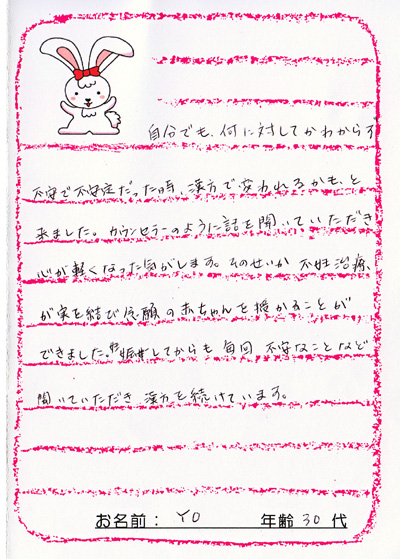 自分でも、何に対してかわからず
不安で不安定だった時、漢方で変われるかも、と
来ました。カウンセラーのように話を聞いていただき
心が軽くなった気がします。そのせいか 不妊治療、
が実を結び念願の赤ちゃんを授かることが
できました。妊娠してからも毎回 不安なことなど
聞いていただき 漢方を続けています。
お名前： YO 年齢 30 代